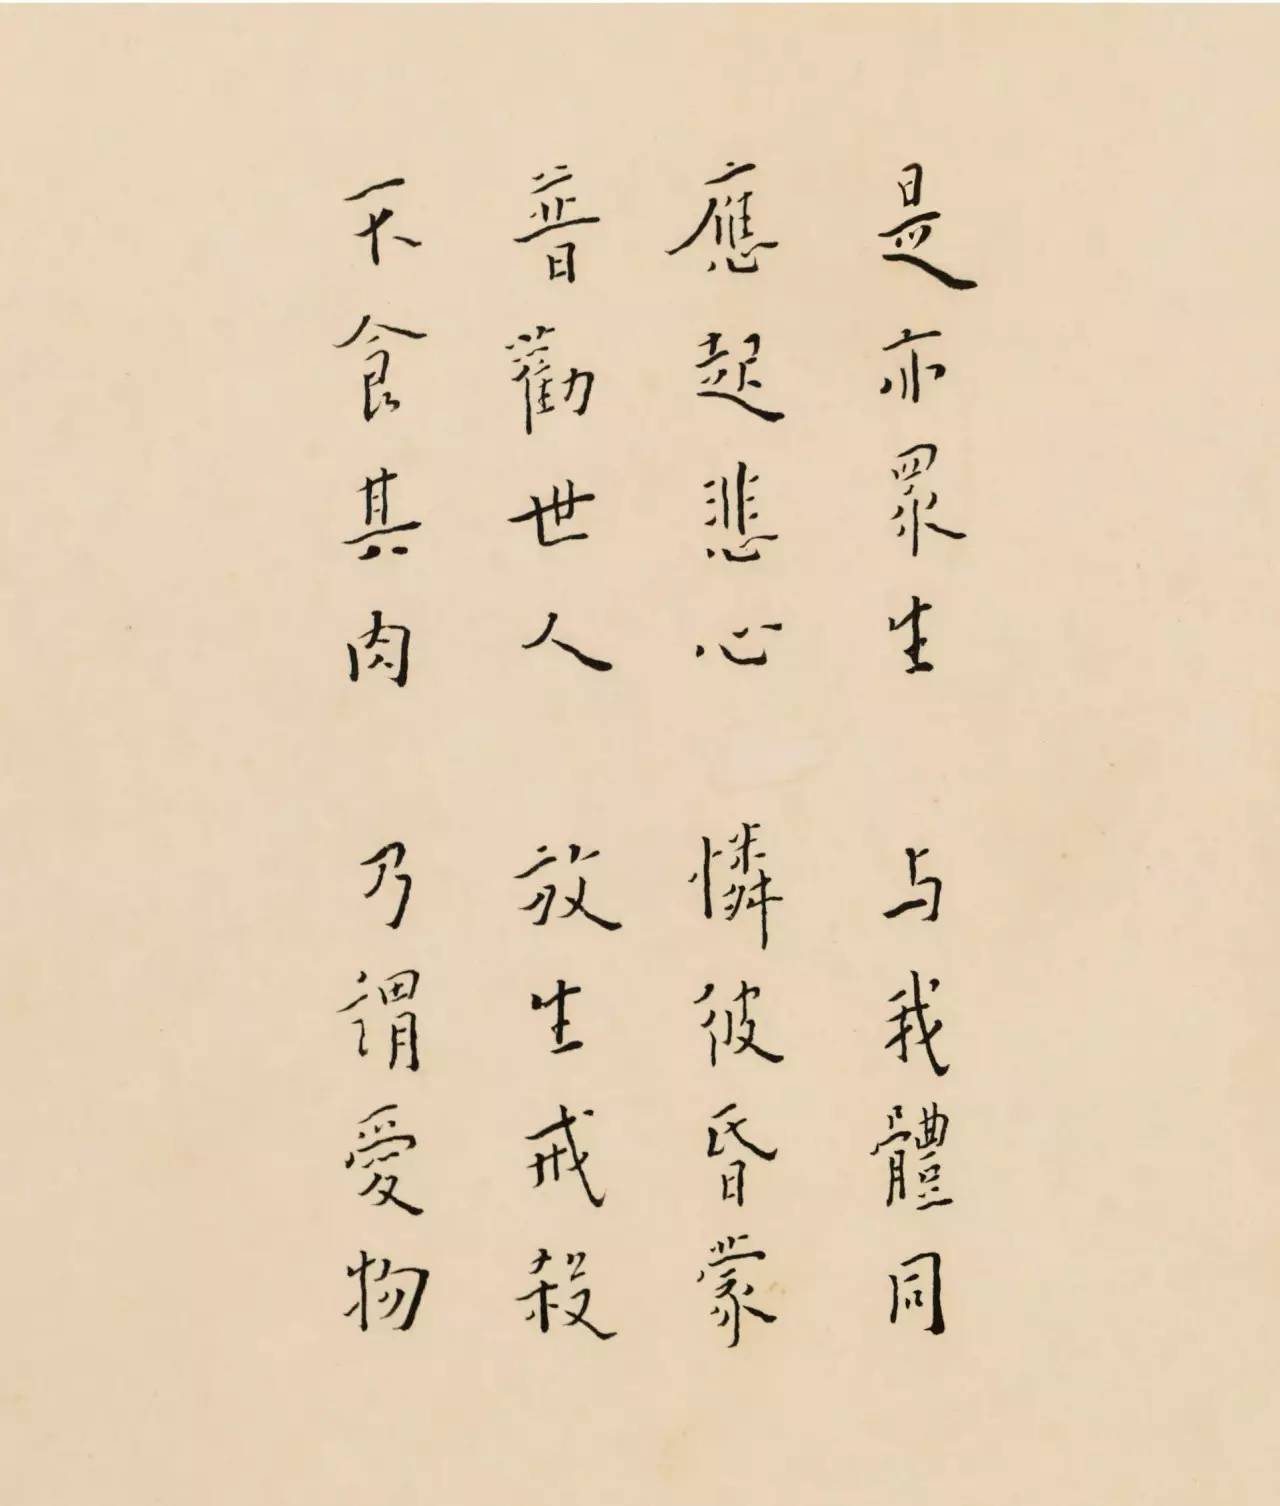 是亦眾生　与我體同
應起悲心　憐彼昏蒙
普勸世人　放生戒殺
不食其肉　乃謂愛物